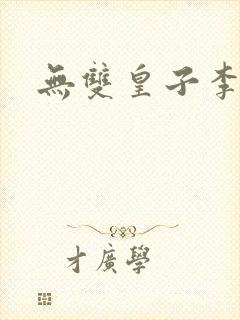 無雙皇子李
才廣學